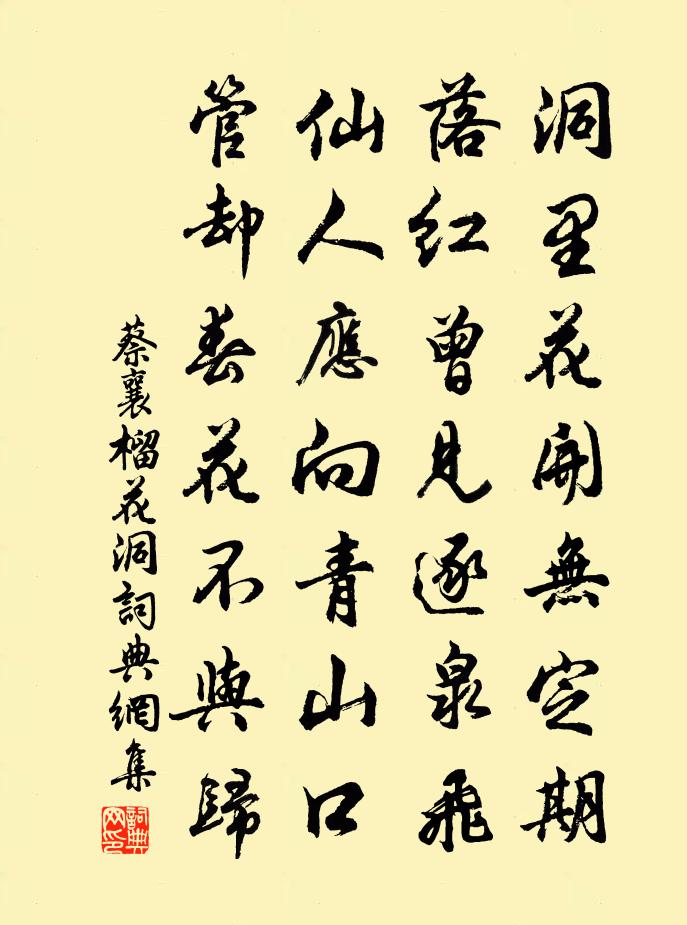 洞里花開無定期
落紅曾見逐泉飛
仙人應向青山口
管却春花不與歸
蔡襄榴花洞詞典網集
詞典網印